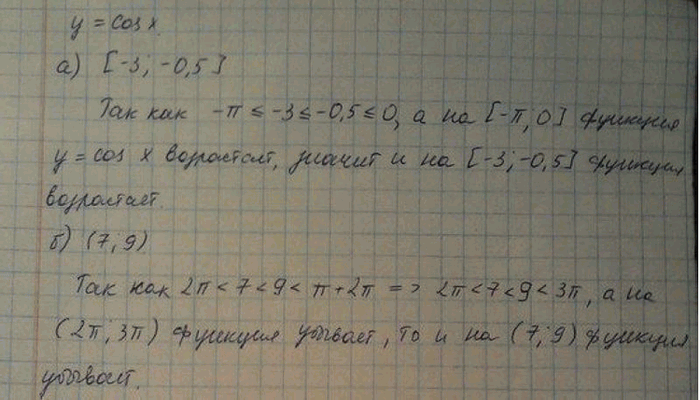 y = cos x.
а) [-3; -0,5]
Так как -π ≤ -3 ≤ -0,5 ≤ 0, а на [-π, 0] функция
y = cos x возрастает, значит и на [-3; -0,5] функция
возрастает.
б) (7; 9)
Так как 2π < 7 < 9 < π + 2π => 2π < 7 < 9 < 3π, а на
(2π; 3π) функция убывает, то и на (7; 9) функция
убывает.